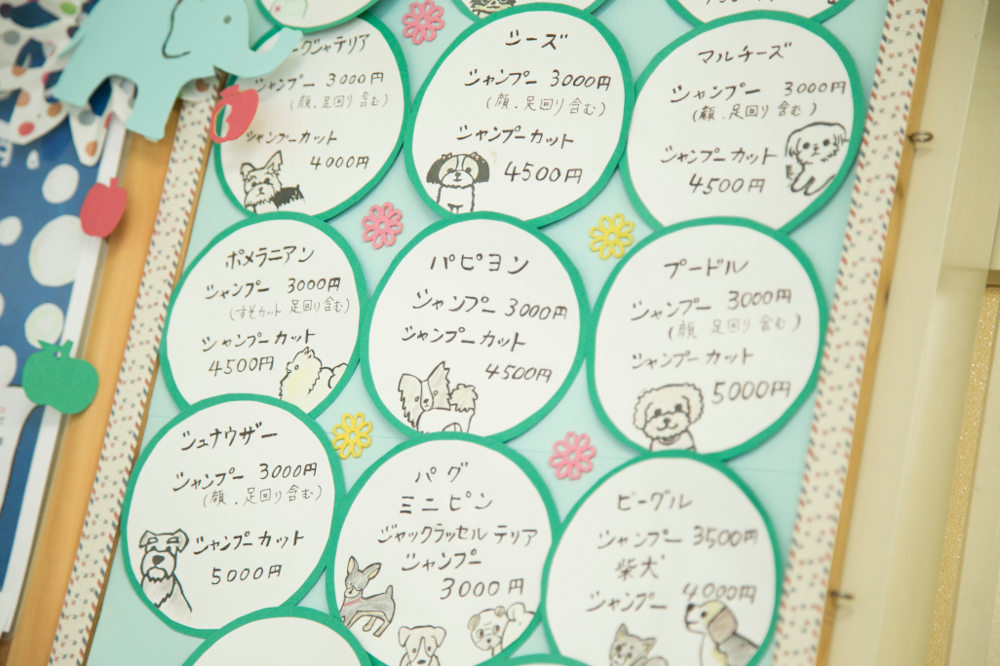 ークシャテリア
シャンプー 3000円
(顔.足回り含む)
シャンプーカット
4000円
シーズ
シャンプー 3000円
(顔.足回り含む)
シャンプーカット
4500円
マルチーズ
シャンプー 3000円
(顔.足回り含む)
シャンプーカット
4500円
ポメラニアン
シャンプー 3000円
(すそカット 足回り含む)
シャンプーカット
4500円
パピヨン
シャンプー 3000円
シャンプーカット
4500円
プードル
シャンプー 3000円
(顔 足回り含む)
シャンプーカット
5000円
シュナウザー
シャンプー 3000円
(顔.足回り含む)
シャンプーカット
5000円
パグ
ミニピン
ジャックラッセルテリア
シャンプー
3000円
ビーグル
シャンプー 3500円
柴犬
シャンプー 4000円